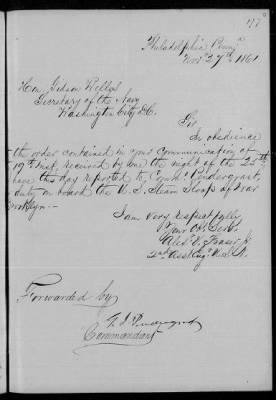 Philadelphia Penn^a
Nov 27^th 1861
Hon Gideon Welles
Secretary of the Navy
Washington City D.C.
Sir,
In obedience
the order contained in your Communication of
19^th inst, received by me the night of the 25^th
have this day reported to Com^dr Pendergrast,
duty on board the U. S. Steam Sloop of War
Brooklyn.—
I am very respectfully
Your Ob^t Serv^t
Alex V. Fraser Jr
2^nd Ass^t Eng^r U.S.N.
Forwarded by
G. J. Pendergrast
Commandant